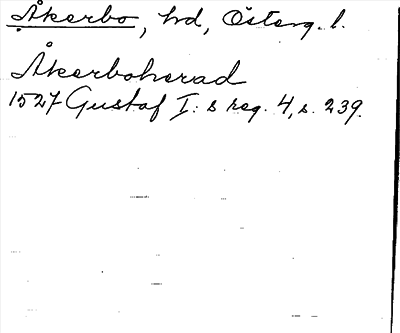 Åkerbo, hd, Österg. l.
Åkerboherad
1527 Gustaf I: s reg. 4, s. 239.